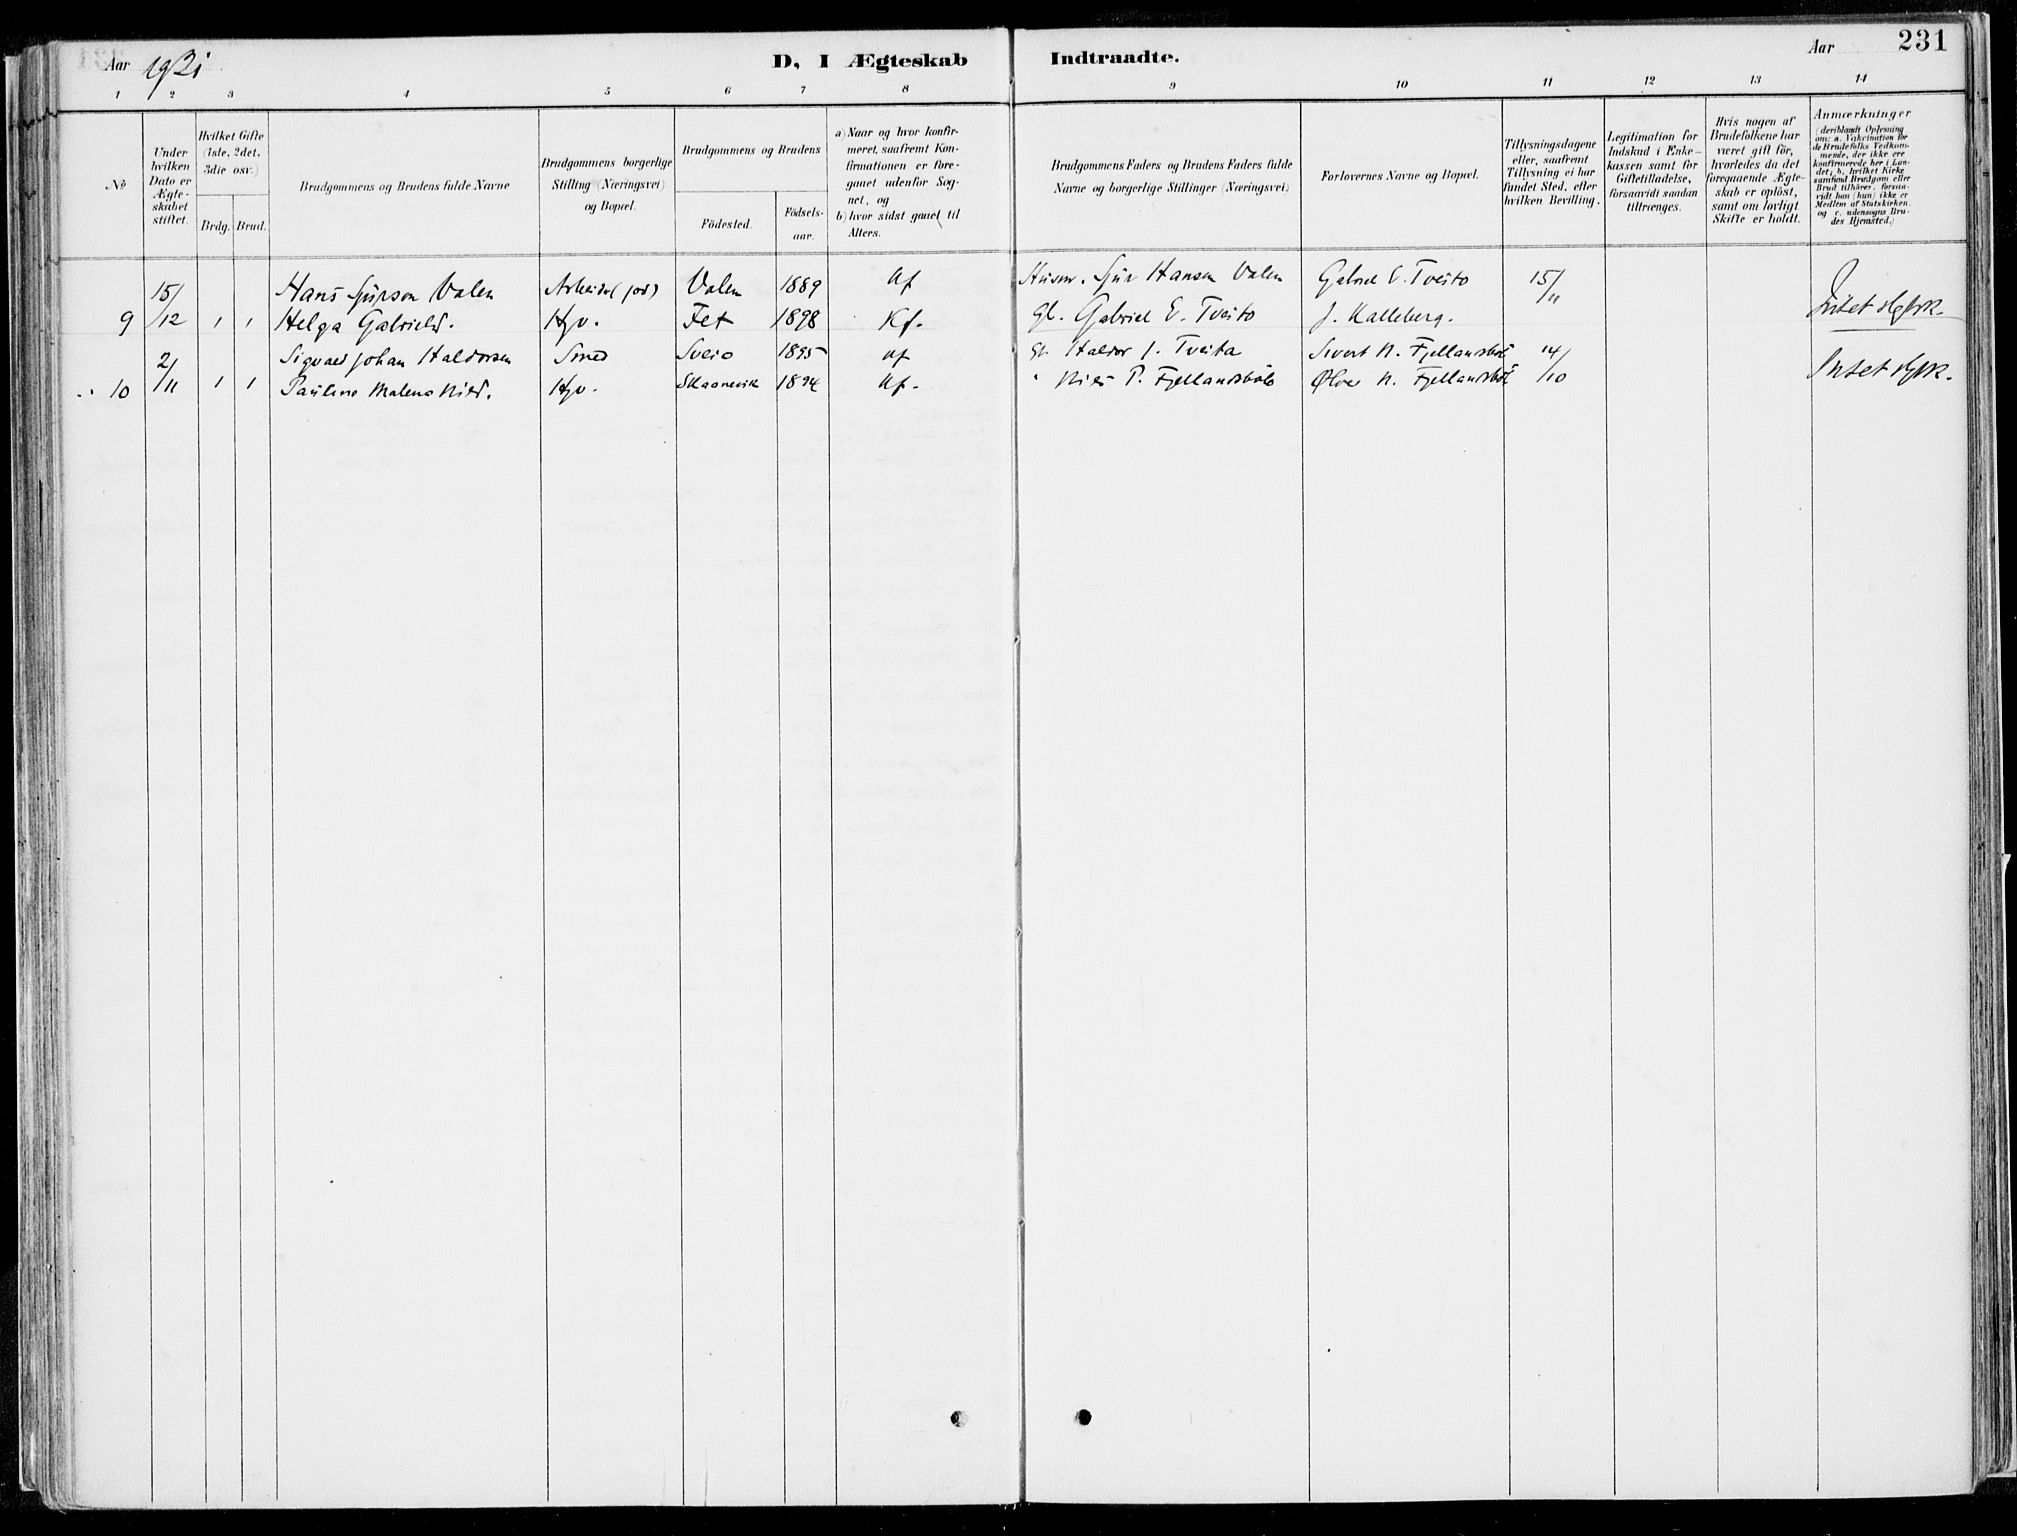 Aar 1921
D, I Ægteskab Indtraadte.
Aar 231
1 2 3 4 5 6 7 8 9 10 11 12 13 14
No
Under hvilken Dato er Ægteskabet stiftet.
Hvilket Gifte (1ste, 2det, 3die osv.)
Brdg. Brud.
Brudgommens og Brudens fulde Navne
Brudgommens borgerlige Stilling (Næringsvei) og Bopæl.
Brudgommens og Brudens
Födested. Födselsaar.
a) Naar og hvor konfirmeret, saafremt Konfirmationen er foregaaet udenfor Sognet, og
b) hvor sidst gaaet til Alters.
Brudgommens Faders og Brudens Faders fulde Navne og borgerlige Stillinger (Næringsvei)
Forlovernes Navne og Bopæl.
Tillysningsdagene eller, saafremt Tillysning ei har fundet Sted, efter hvilken Bevilling.
Legitimation for Indskud i Enkekassen samt for Giftetilladelse, forsaavidt saadan tiltrænges.
Hvis nogen af Brudefolkene har været gift för, hvorledes da det foregaaende Ægteskab er oplöst, samt om lovligt Skifte er holdt.
Anmærkninger (deriblandt Oplysning om: a. Vakcination for de Brudefolks Vedkommende, der ikke ere konfirmerede her i Landet; b. hvilket Kirkesamfund Brudgom eller Brud tilhörer, forsaavidt han (hun) ikke er Medlem af Statskirken, og c. udensogns Brudes Hjemsted.)
15/ Hans Sjurson Valen Arbeider( Valen 1889 Kf Husm. Sjur Hansen Valen Gabriel E. Tveito 15/11
9 /12 1 1 Helga Gabrielsd. Hjv. Fet 1898 Kf. Gb. Gabriel E. Tveito J. Kalleberg. Intet
2/ Sigvald Johan Haldorsen Smed Sveio 1895 Kf Gb. Haldor J. Tveita Sivert N. Fjellandsböl 14/
10 /11 1 1 Pauline Malene Nilsd. Hjv. Skaanevik 1894 Kf. " Nils P. Fjellandsböl Ölver N. Fjellandsböl /10 Intet